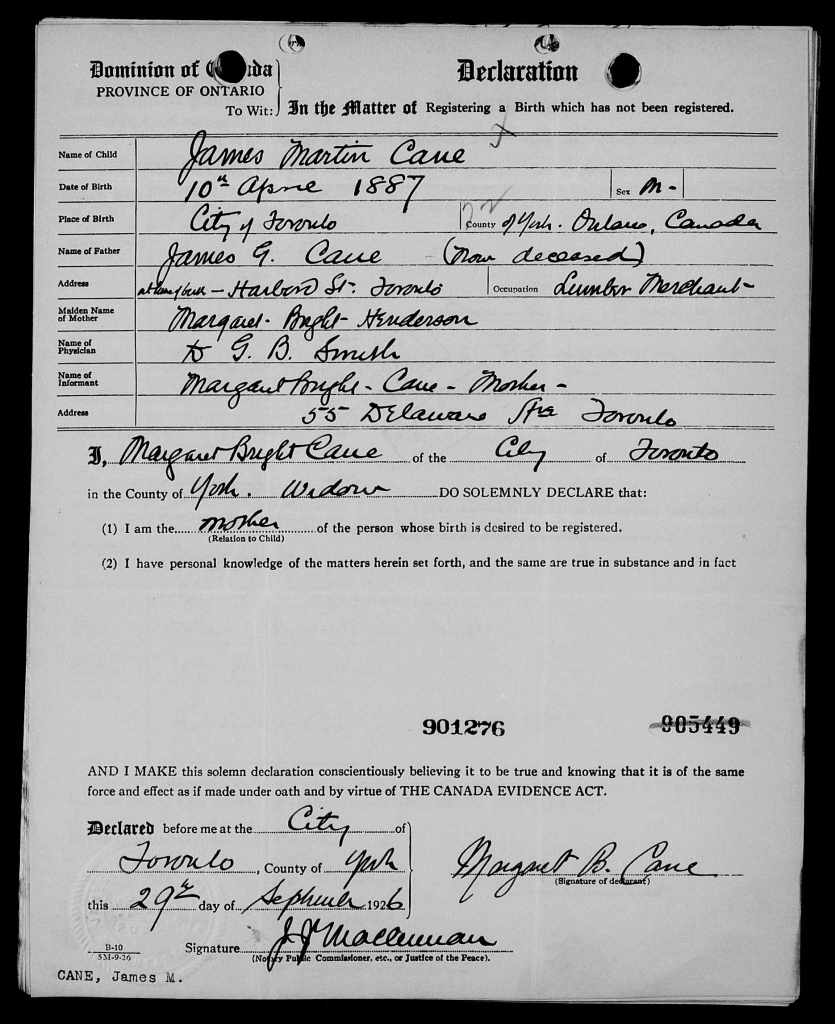 Dominion of Canada
Declaration
PROVINCE OF ONTARIO
To Wit: In the Matter of Registering a Birth which has not been registered.
Name of Child James Martin Cane
Date of Birth 10th April 1887 Sex M-
Place of Birth City of Toronto County of York. Ontario, Canada
Name of Father James G. Cane (Now deceased)
Address at time of birth - Harbord St. Toronto Occupation Lumber Merchant-
Maiden Name of Mother Margaret Bright Henderson
Name of Physician Dr G. B. Smith
Name of Informant Margaret Bright Cane - Mother -
Address 55 Delaware Ave Toronto
I, Margaret Bright Cane of the City of Toronto
in the County of York. Widow DO SOLEMNLY DECLARE that:
(1) I am the mother of the person whose birth is desired to be registered.
(Relation to Child)
(2) I have personal knowledge of the matters herein set forth, and the same are true in substance and in fact
901276 905449
AND I MAKE this solemn declaration conscientiously believing it to be true and knowing that it is of the same
force and effect as if made under oath and by virtue of THE CANADA EVIDENCE ACT.
Declared before me at the City of
Toronto, County of York
Margaret B. Cane
(Signature of declarant)
this 29th day of September 1926
Signature
(Notary Public Commissioner, etc., or Justice of the Peace).
B-10
CANE, James M.